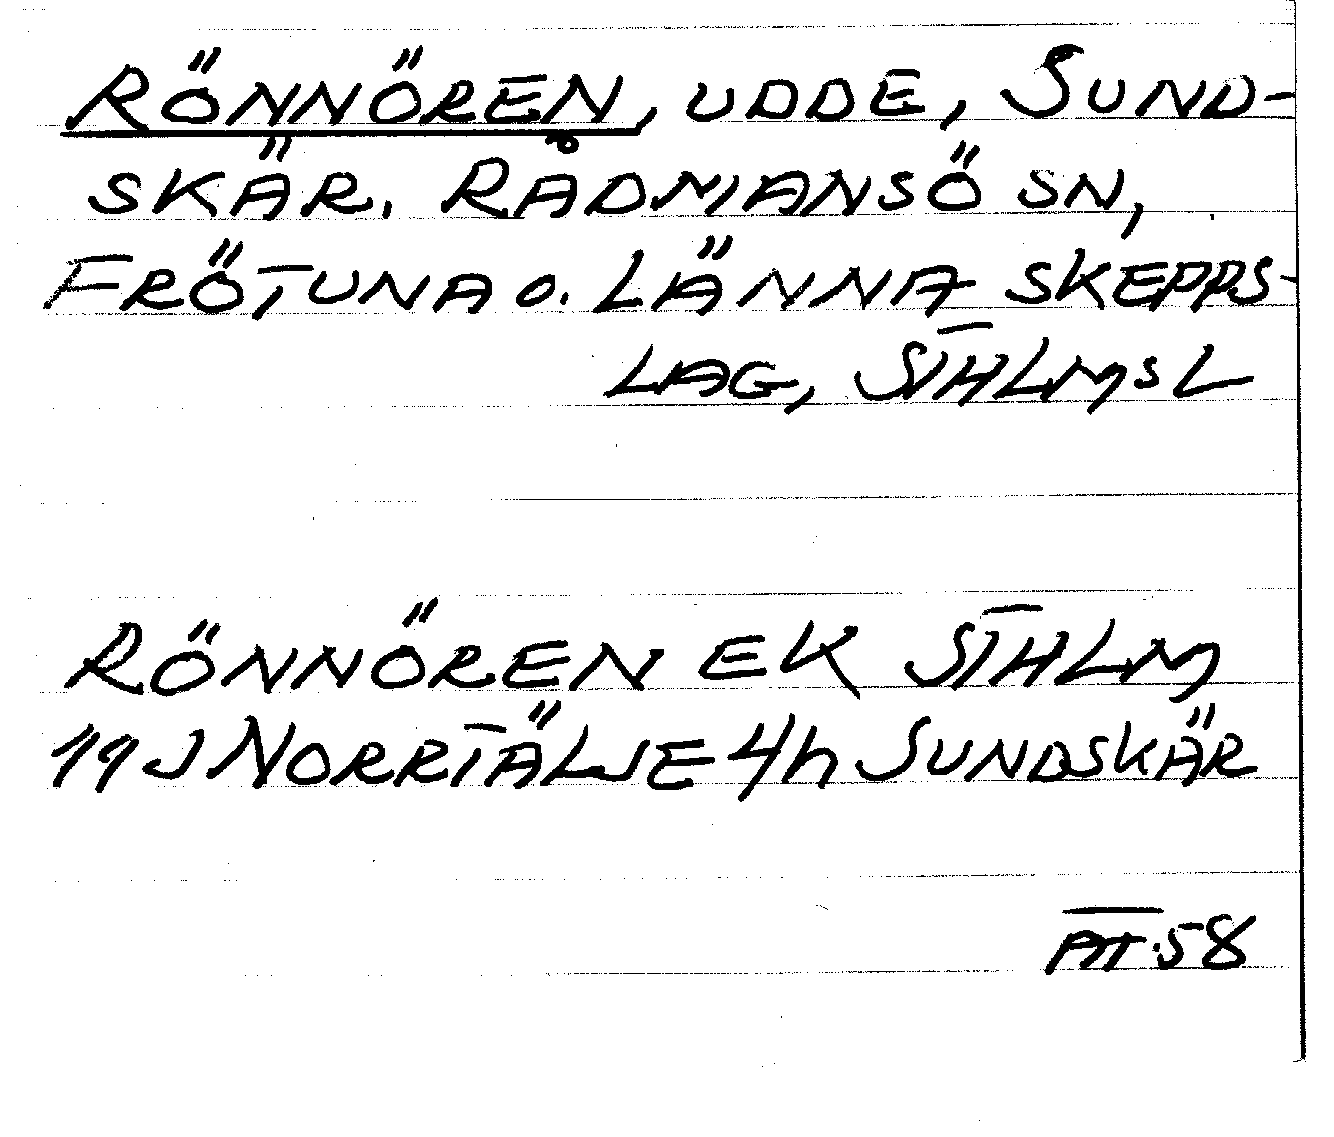 RÖNNÖREN, UDDE, SUND-
SKÄR. RÅDMANSÖ SN,
FRÖTUNA O. LÄNNA SKEPPS-
LAG, STHLMS L
RÖNNÖREN EK STHLM
19 J NORRTÄLJE 4h SUNDSKÄR
58